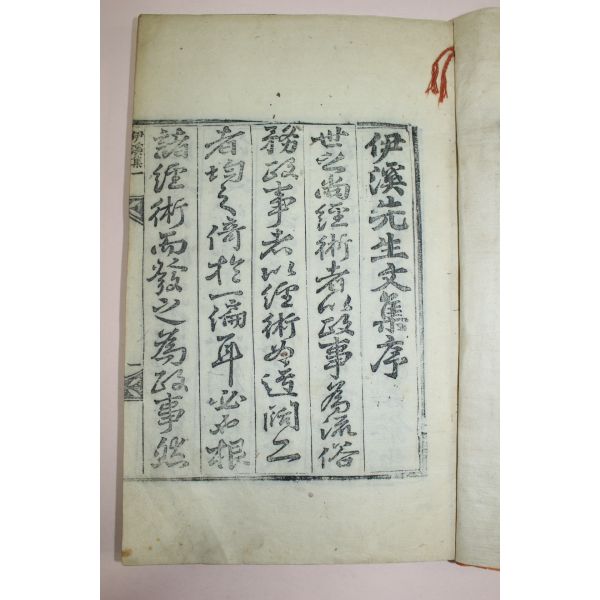 伊溪先生文集序
世之尚經術者以政事為流俗
務政事者以經術為迂闊二
者均之倚於一偏耳必也根
諸經術而發之為政事然
伊溪集一
一